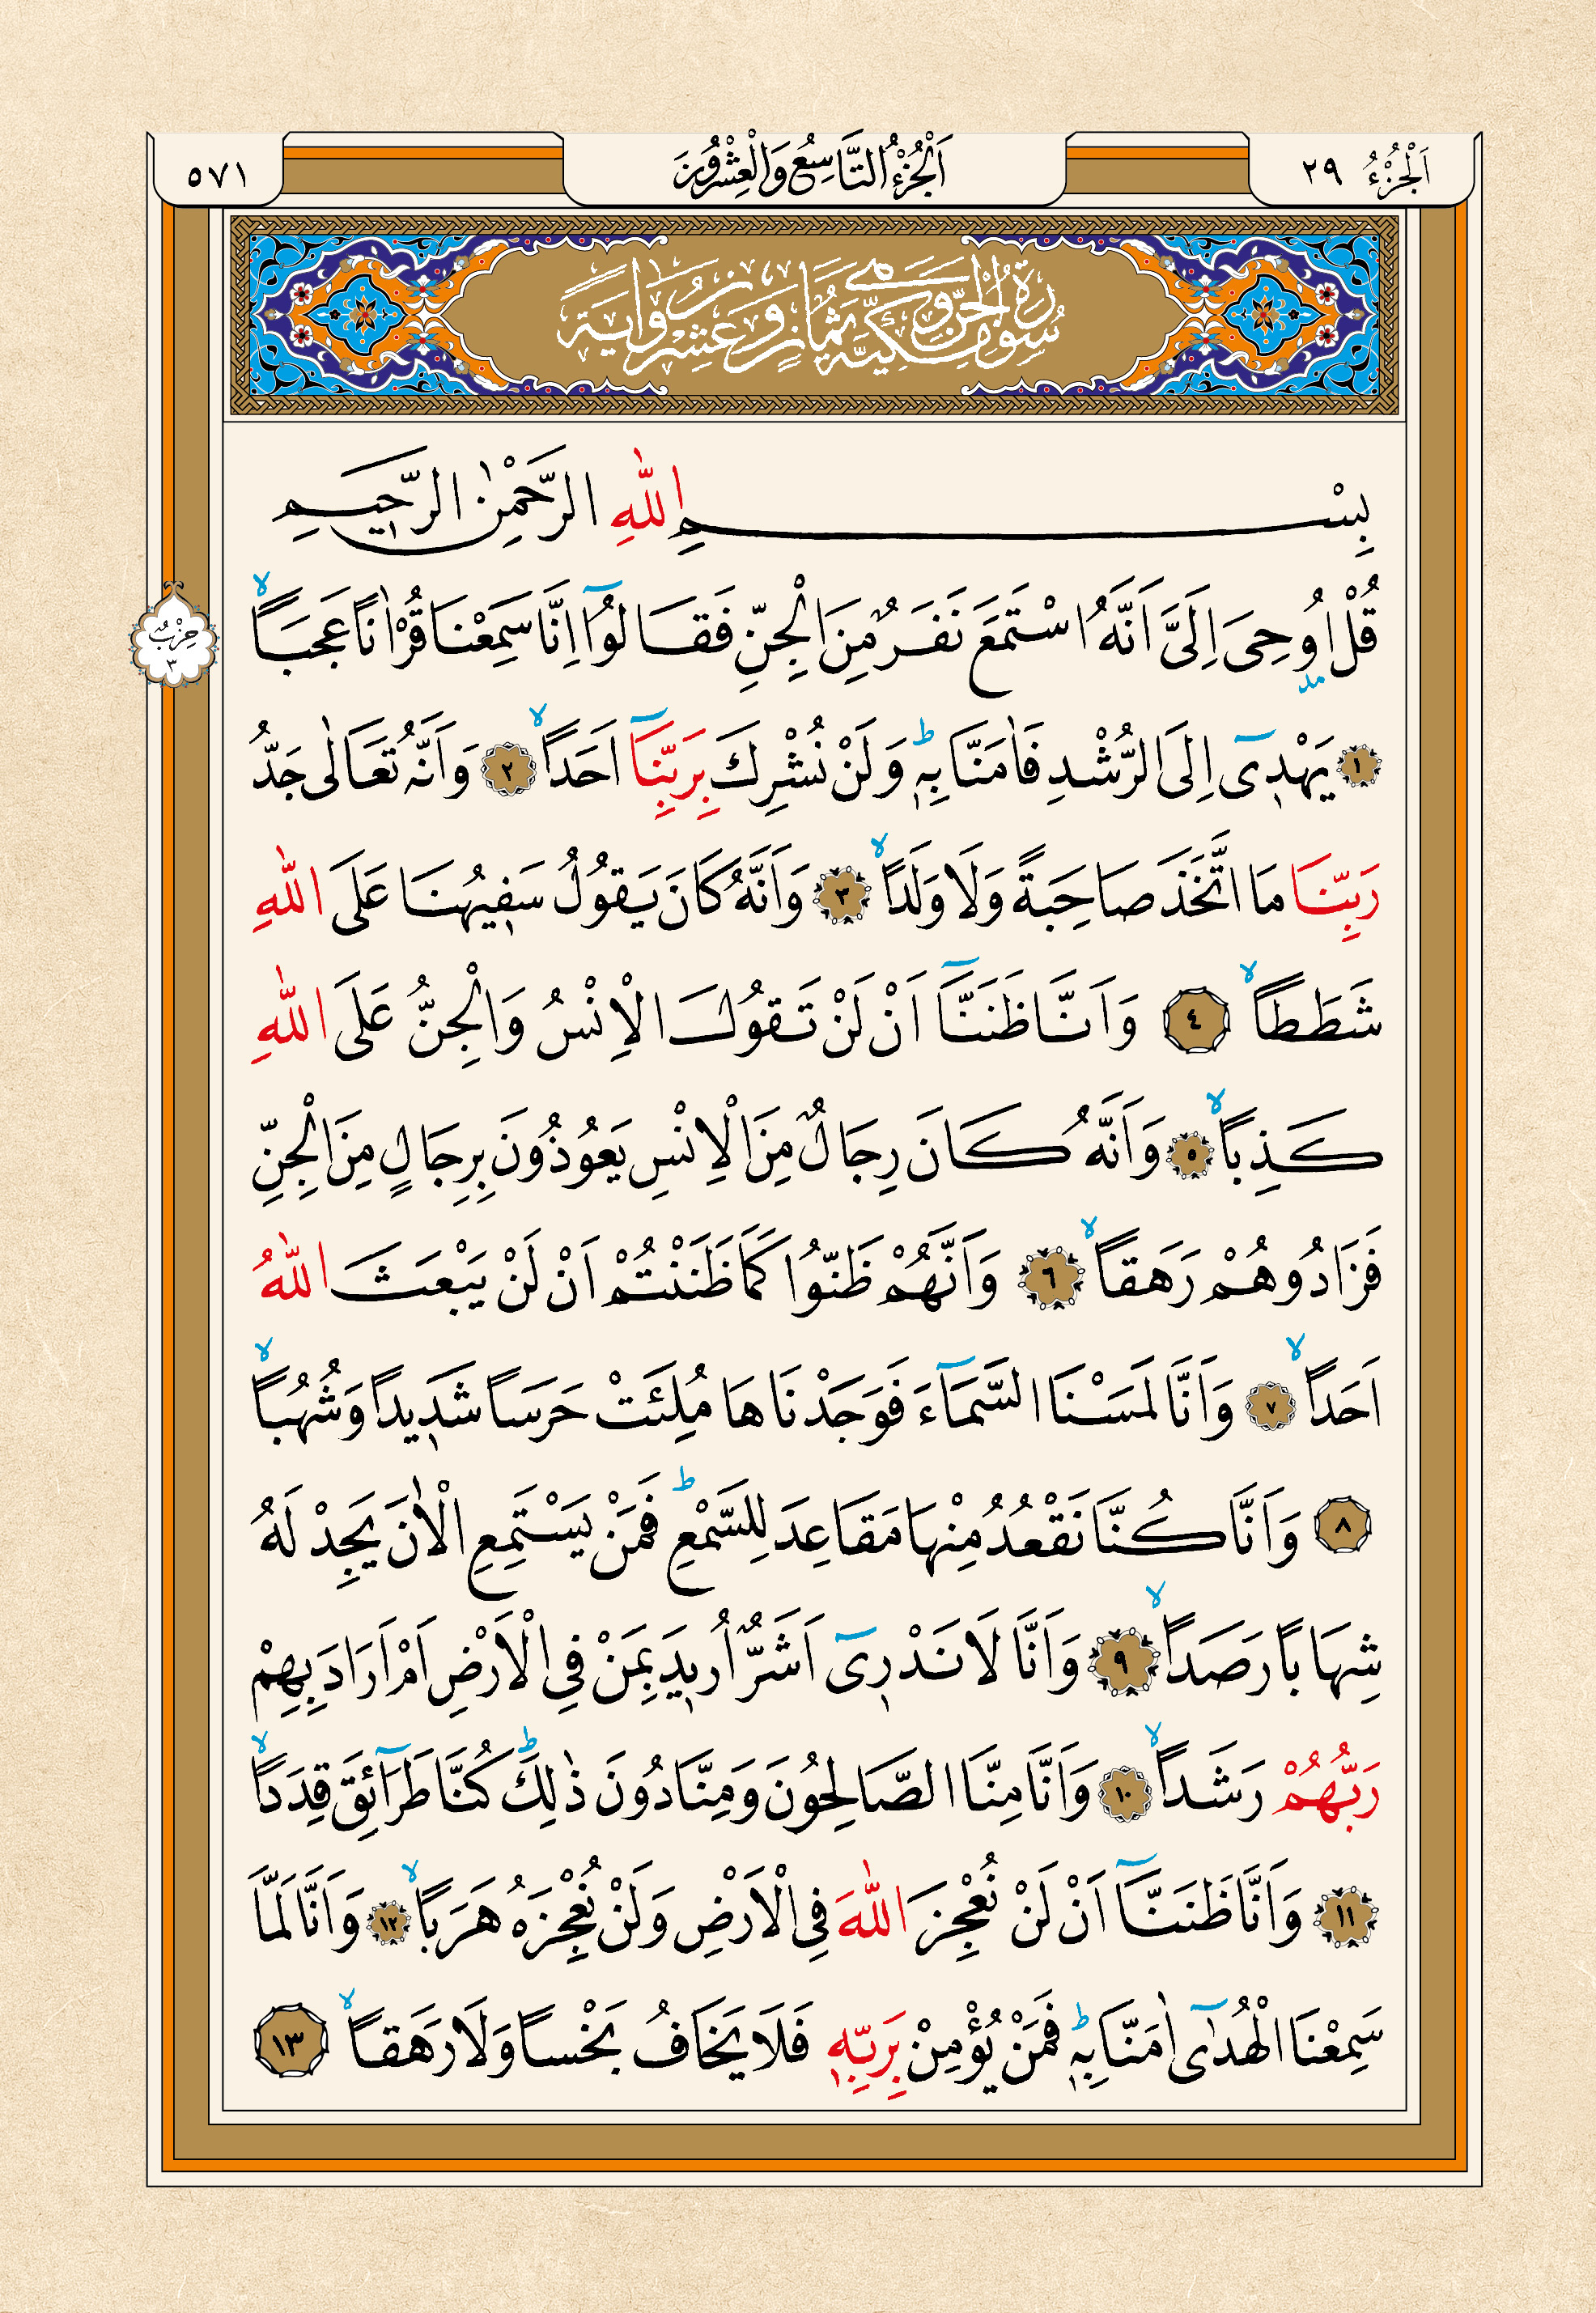 اَلْجُزْءُ ٢٩
اَلْجُزْءُ التَّاسِعُ وَالْعِشْرُونَ
٥٧١
سُورَةُ الْجِنِّ مَكِّيَّةٌ وَهِيَ ثَمَانٍ وَعِشْرُونَ اٰيَةً
بِسْمِ اللّٰهِ الرَّحْمٰنِ الرَّحِيمِ
قُلْ اُو۫حِيَ اِلَيَّ اَنَّهُ اسْتَمَعَ نَفَرٌ مِنَ الْجِنِّ فَقَالُٓوا اِنَّا سَمِعْنَا قُرْاٰناً عَجَباًۙ
حِزْبٌ
٣
﴿١﴾ يَهْد۪ٓي اِلَى الرُّشْدِ فَاٰمَنَّا بِه۪ۜ وَلَنْ نُشْرِكَ بِرَبِّنَٓا اَحَداًۙ ﴿٢﴾ وَاَنَّهُ تَعَالٰى جَدُّ
رَبِّنَا مَا اتَّخَذَ صَاحِبَةً وَلَا وَلَداًۙ ﴿٣﴾ وَاَنَّهُ كَانَ يَقُولُ سَف۪يهُنَا عَلَى اللّٰهِ
شَطَطاًۙ ﴿٤﴾ وَاَنَّا ظَنَنَّٓا اَنْ لَنْ تَقُولَ الْاِنْسُ وَالْجِنُّ عَلَى اللّٰهِ
كَذِباًۙ ﴿٥﴾ وَاَنَّهُ كَانَ رِجَالٌ مِنَ الْاِنْسِ يَعُوذُونَ بِرِجَالٍ مِنَ الْجِنِّ
فَزَادُوهُمْ رَهَقاًۙ ﴿٦﴾ وَاَنَّهُمْ ظَنُّوا كَمَا ظَنَنْتُمْ اَنْ لَنْ يَبْعَثَ اللّٰهُ
اَحَداًۙ ﴿٧﴾ وَاَنَّا لَمَسْنَا السَّمَٓاءَ فَوَجَدْنَاهَا مُلِئَتْ حَرَساً شَد۪يداً وَشُهُباًۙ
﴿٨﴾ وَاَنَّا كُنَّا نَقْعُدُ مِنْهَا مَقَاعِدَ لِلسَّمْعِۜ فَمَنْ يَسْتَمِعِ الْاٰنَ يَجِدْ لَهُ
شِهَاباً رَصَداًۙ ﴿٩﴾ وَاَنَّا لَا نَدْر۪ٓي اَشَرٌّ اُر۪يدَ بِمَنْ فِي الْاَرْضِ اَمْ اَرَادَ بِهِمْ
رَبُّهُمْ رَشَداًۙ ﴿١٠﴾ وَاَنَّا مِنَّا الصَّالِحُونَ وَمِنَّا دُونَ ذٰلِكَۜ كُنَّا طَرَٓائِقَ قِدَداًۙ
﴿١١﴾ وَاَنَّا ظَنَنَّٓا اَنْ لَنْ نُعْجِزَ اللّٰهَ فِي الْاَرْضِ وَلَنْ نُعْجِزَهُ هَرَباًۙ ﴿١٢﴾ وَاَنَّا لَمَّا
سَمِعْنَا الْهُدٰٓى اٰمَنَّا بِه۪ۜ فَمَنْ يُؤْمِنْ بِرَبِّه۪ فَلَا يَخَافُ بَخْساً وَلَا رَهَقاًۙ ﴿١٣﴾